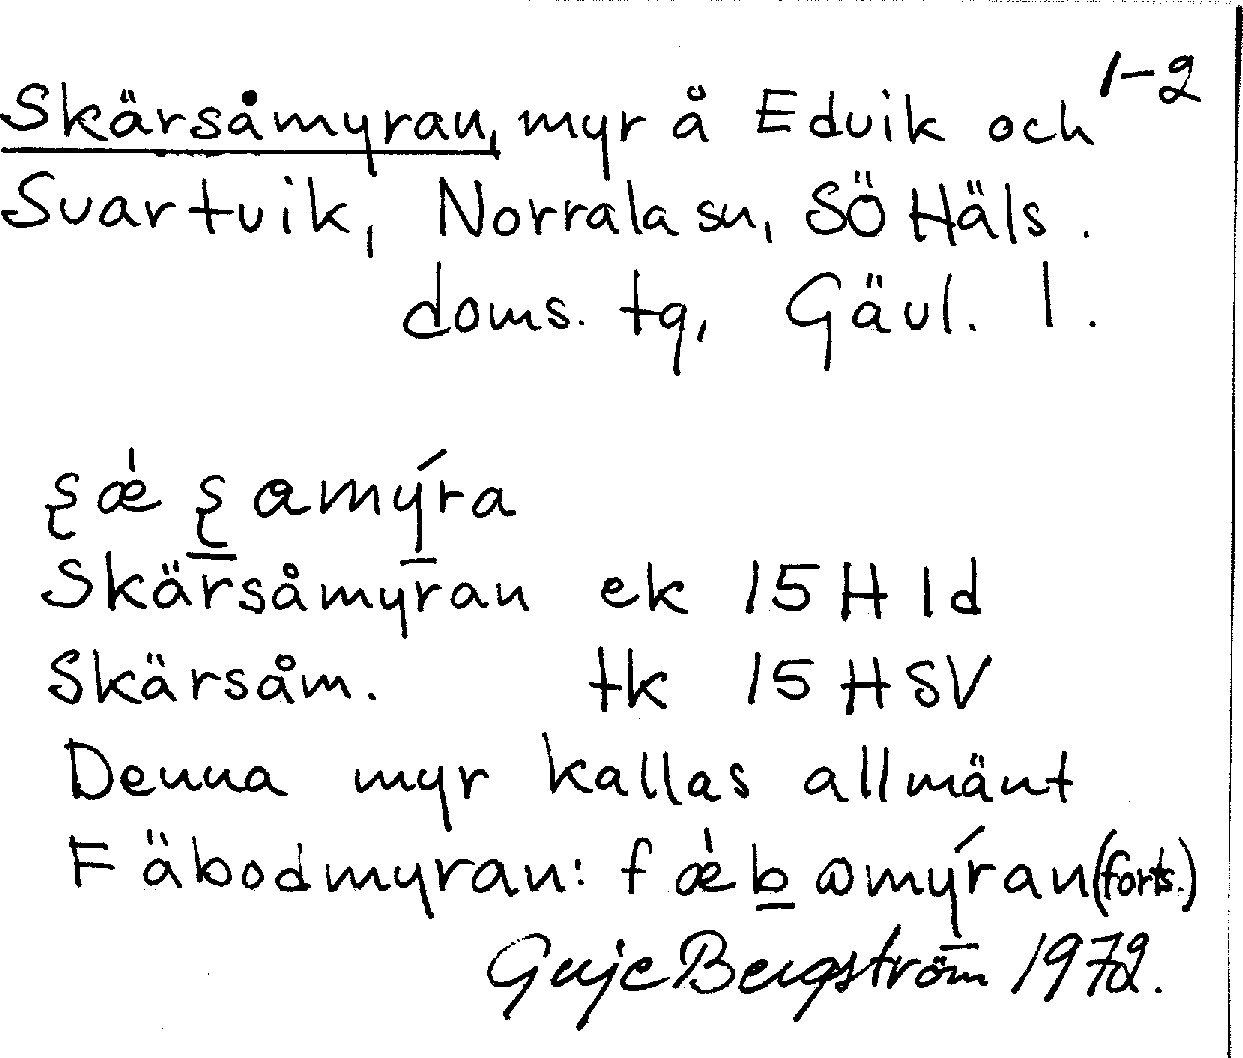 1-2
Skärsåmyran, myr å Edvik och
Svartvik, Norrala sn, SÖ Häls.
doms. tg, Gävl. l.
Skärsåmyran ek 15H 1d
Skärsåm. tk 15H SV
Denna myr kallas allmänt
Fäbodmyran: (forts.)
Bergström 1972.